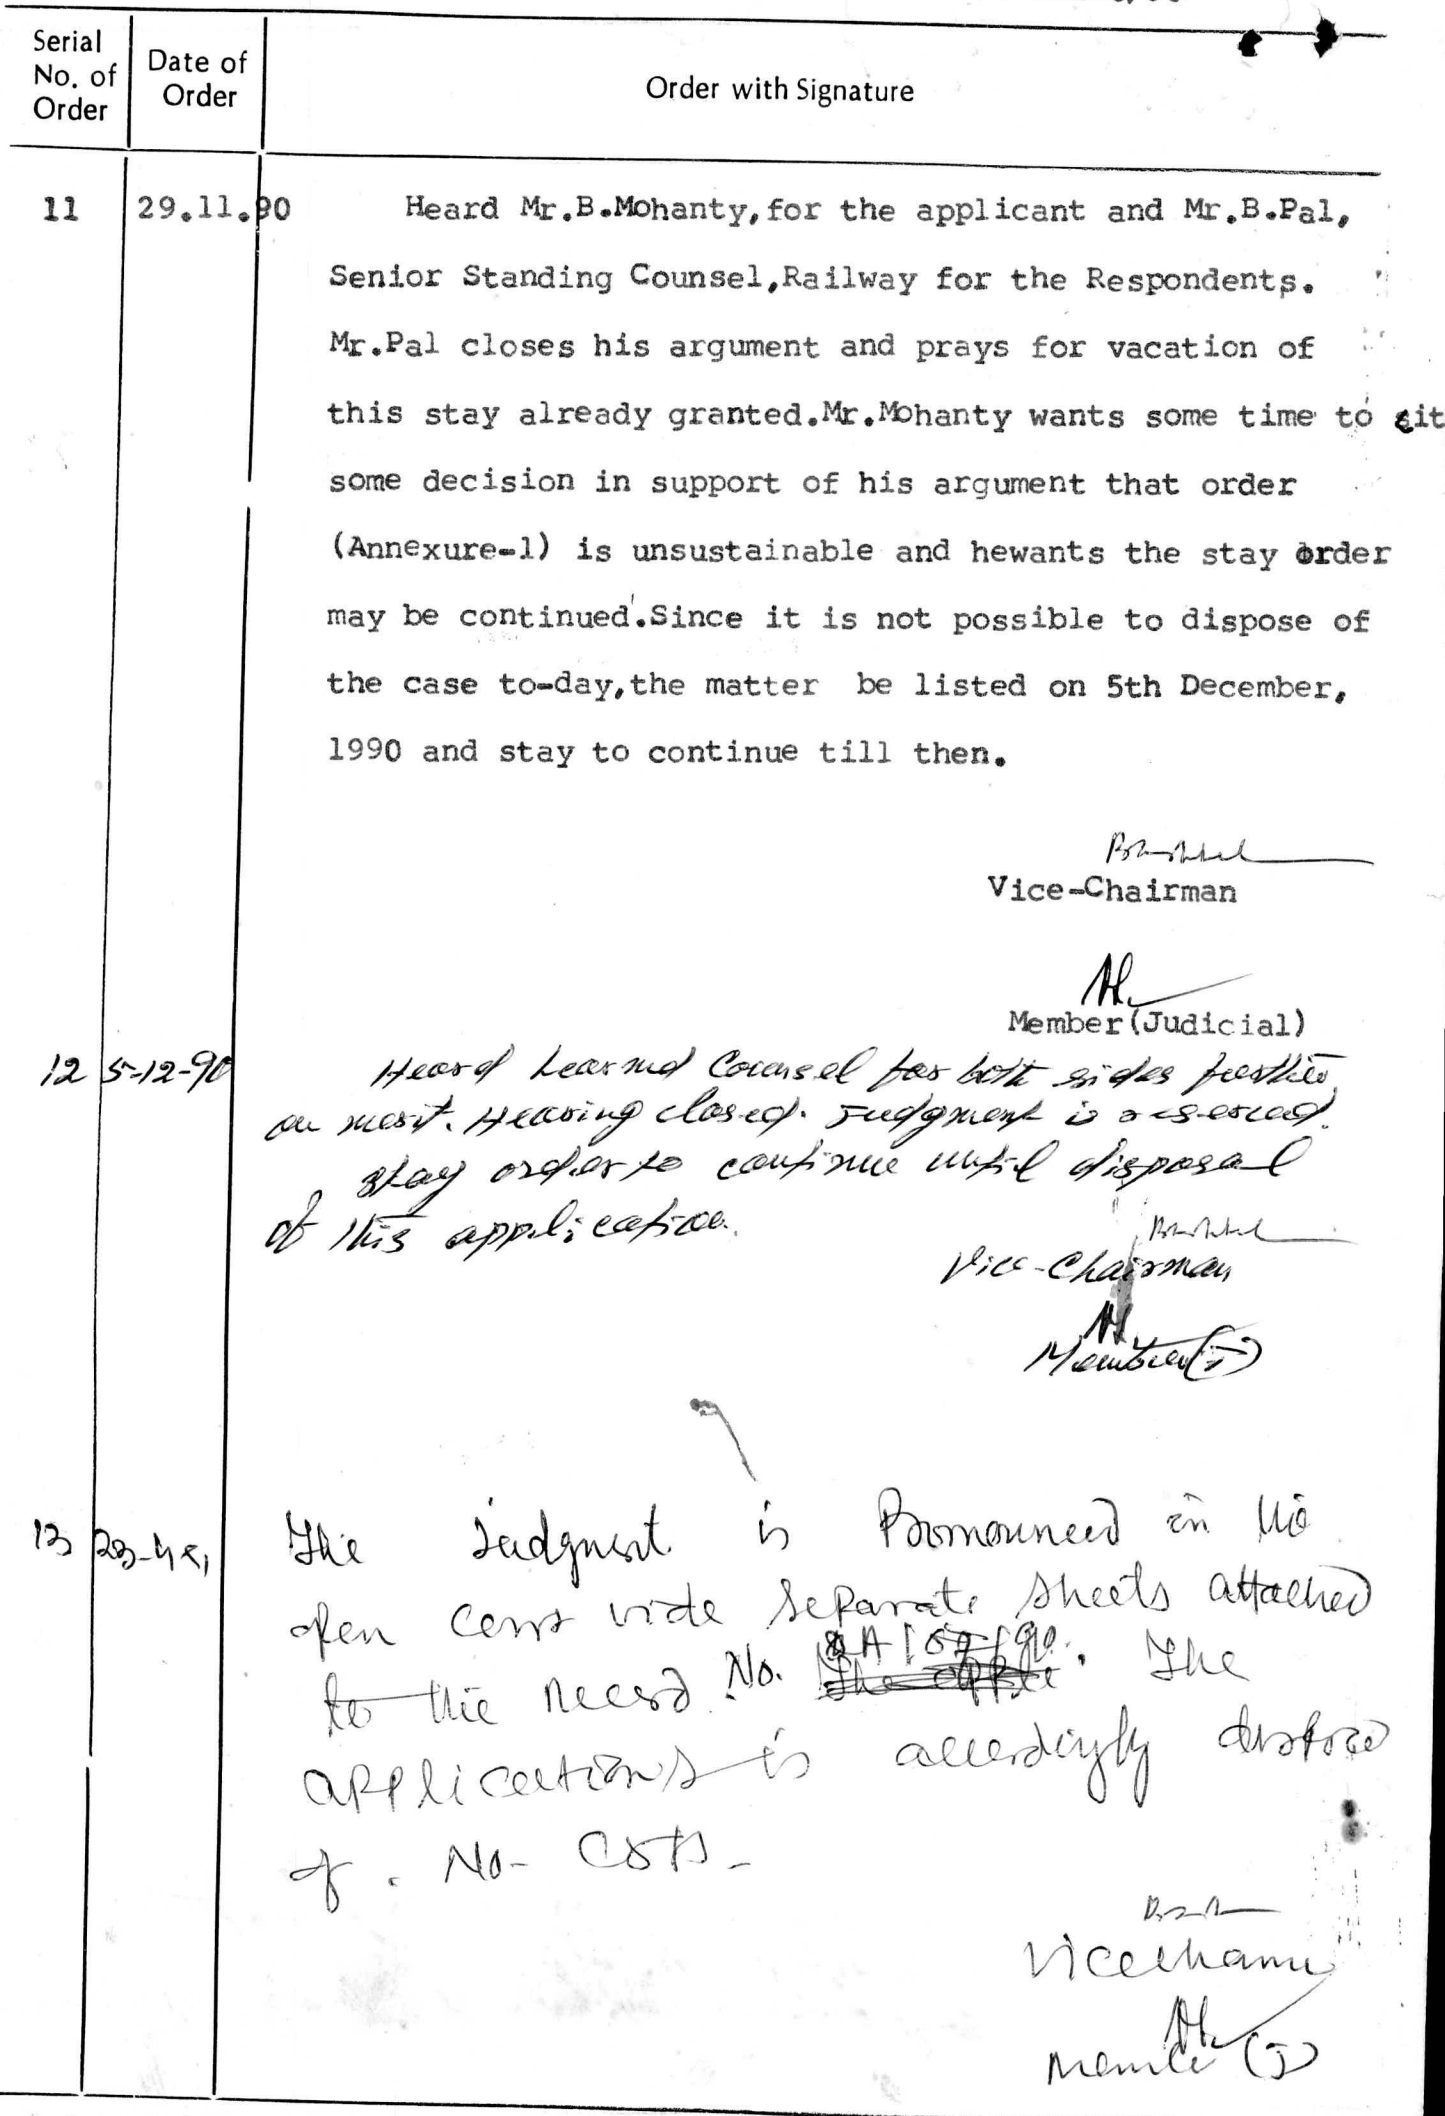 Serial No. of Order
Date of Order
Order with Signature
11
29.11.90
Heard Mr.B.Mohanty,for the applicant and Mr.B.Pal,
Senior Standing Counsel,Railway for the Respondents.
Mr.Pal closes his argument and prays for vacation of
this stay already granted.Mr.Mohanty wants some time to cit
some decision in support of his argument that order
(Annexure-1) is unsustainable and hewants the stay order
may be continued.Since it is not possible to dispose of
the case to-day,the matter be listed on 5th December,
1990 and stay to continue till then.
Vice-Chairman
Member(Judicial)
12
5-12-90
Heard Learned Counsel for both sides further
on merit. Hearing closed. Judgment is reserved.
Stay order to continue until disposal
of this application.
Vice-Chairman
Member(J)
13
The Judgment is Pronounced in the
open Court vide separate sheets attached
to the record No. The
applications is accordingly disposed
of. No Costs.
Vice Chairman
Member (J)